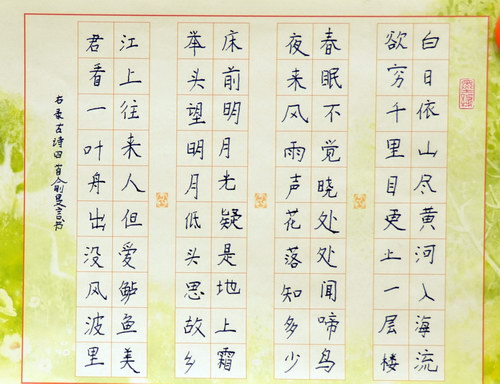 白日依山尽黄河入海流
欲穷千里目更上一层楼
春眠不觉晓处处闻啼鸟
夜来风雨声花落知多少
床前明月光疑是地上霜
举头望明月低头思故乡
江上往来人但爱鲈鱼美
君看一叶舟出没风波里
右录古诗四首俞曼言书